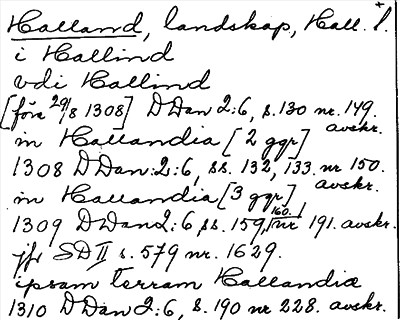 Halland, landskap, Hall. l.
i Hallind
vdi Hallind
[före 29/8 1308] D Dan 2:6, s. 130 nr. 149. avskr.
in Hallandia [2 ggr]
1308 D Dan. 2:6, ss. 132, 133. nr 150. avskr.
in Hallandia [3 ggr]
1309 D Dan 2:6, ss. 159, 160. nr 191. avskr.
jfr SD II s. 579 nr. 1629.
ipsam terram Hallandiæ
1310 D Dan 2:6, s. 190 nr 228. avskr.